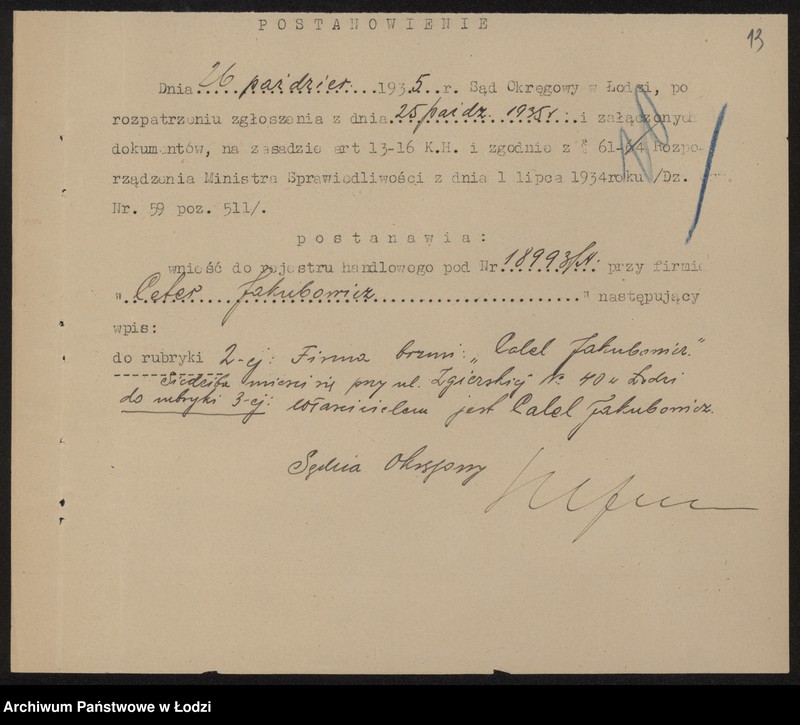 POSTANOWIENIE
13
Dnia 26 paździer. 1935 r. Sąd Okręgowy w Łodzi, po
rozpatrzeniu zgłoszenia z dnia 25 paidz. 1935 r. i załączonych
dokumentów, na zasadzie art 13-16 K.H. i zgodnie z § 61-64 Rozpo-
rządzenia Ministra Sprawiedliwości z dnia 1 lipca 1934roku /Dz.
Nr. 59 poz. 511/.
postanawia:
wnieść do rejestru handlowego pod Nr 18993/A. przy firmie
" Jakubowicz " następujący
wpis:
do rubryki 2-ej: Firma brzmi: „Calel Jakubowicz."
Siedziba mieści się przy ul. Zgierskiej № 40 w Łodzi
do rubryki 3-ej: właścicielem jest Calel Jakubowicz.
Sędzia Okręgowy
Archiwum Państwowe w Łodzi